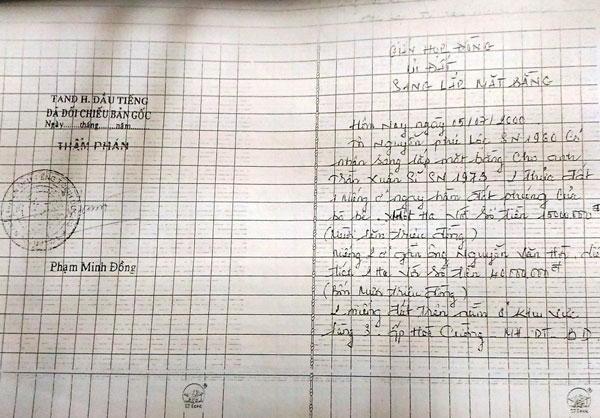 TAND H. DẦU TIẾNG
ĐÃ ĐỐI CHIẾU BẢN GỐC
Ngày......tháng......năm
THẨM PHÁN
Phạm Minh Đồng
HỢP ĐỒNG
ủi ĐẤT
SANG LẤP MẶT BẰNG
Hôm Nay ngày 05/07/2000
Nguyễn phúc Lộc SN 1960 Có
nhận sang lấp mặt bằng Cho
Trần Xuân Sĩ SN 1973 1 thửa đất
1 miếng ở nguy hầm đất phúng Của
bà Ha Với Số tiền 15000.000 đ
(Mười lăm triệu đồng)
miếng 2 ở gần ông Nguyễn Văn
tích 1 Ha Với Số tiền 40.000.000 đ
(Bốn Mươi triệu đồng)
2 miếng đất trên nằm ở Khu vực
làng 3 - ấp Hoà Cường - MH - DT - BD